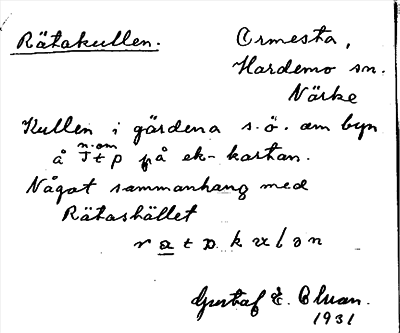 Rätakullen.
Ormesta,
Hardemo sn.
Närke
Kullen i gärdena s.ö. om byn
n. om
å J t p på ek-kartan.
Något sammanhang med
Rätashället
Gustaf E. Bluan.
1931